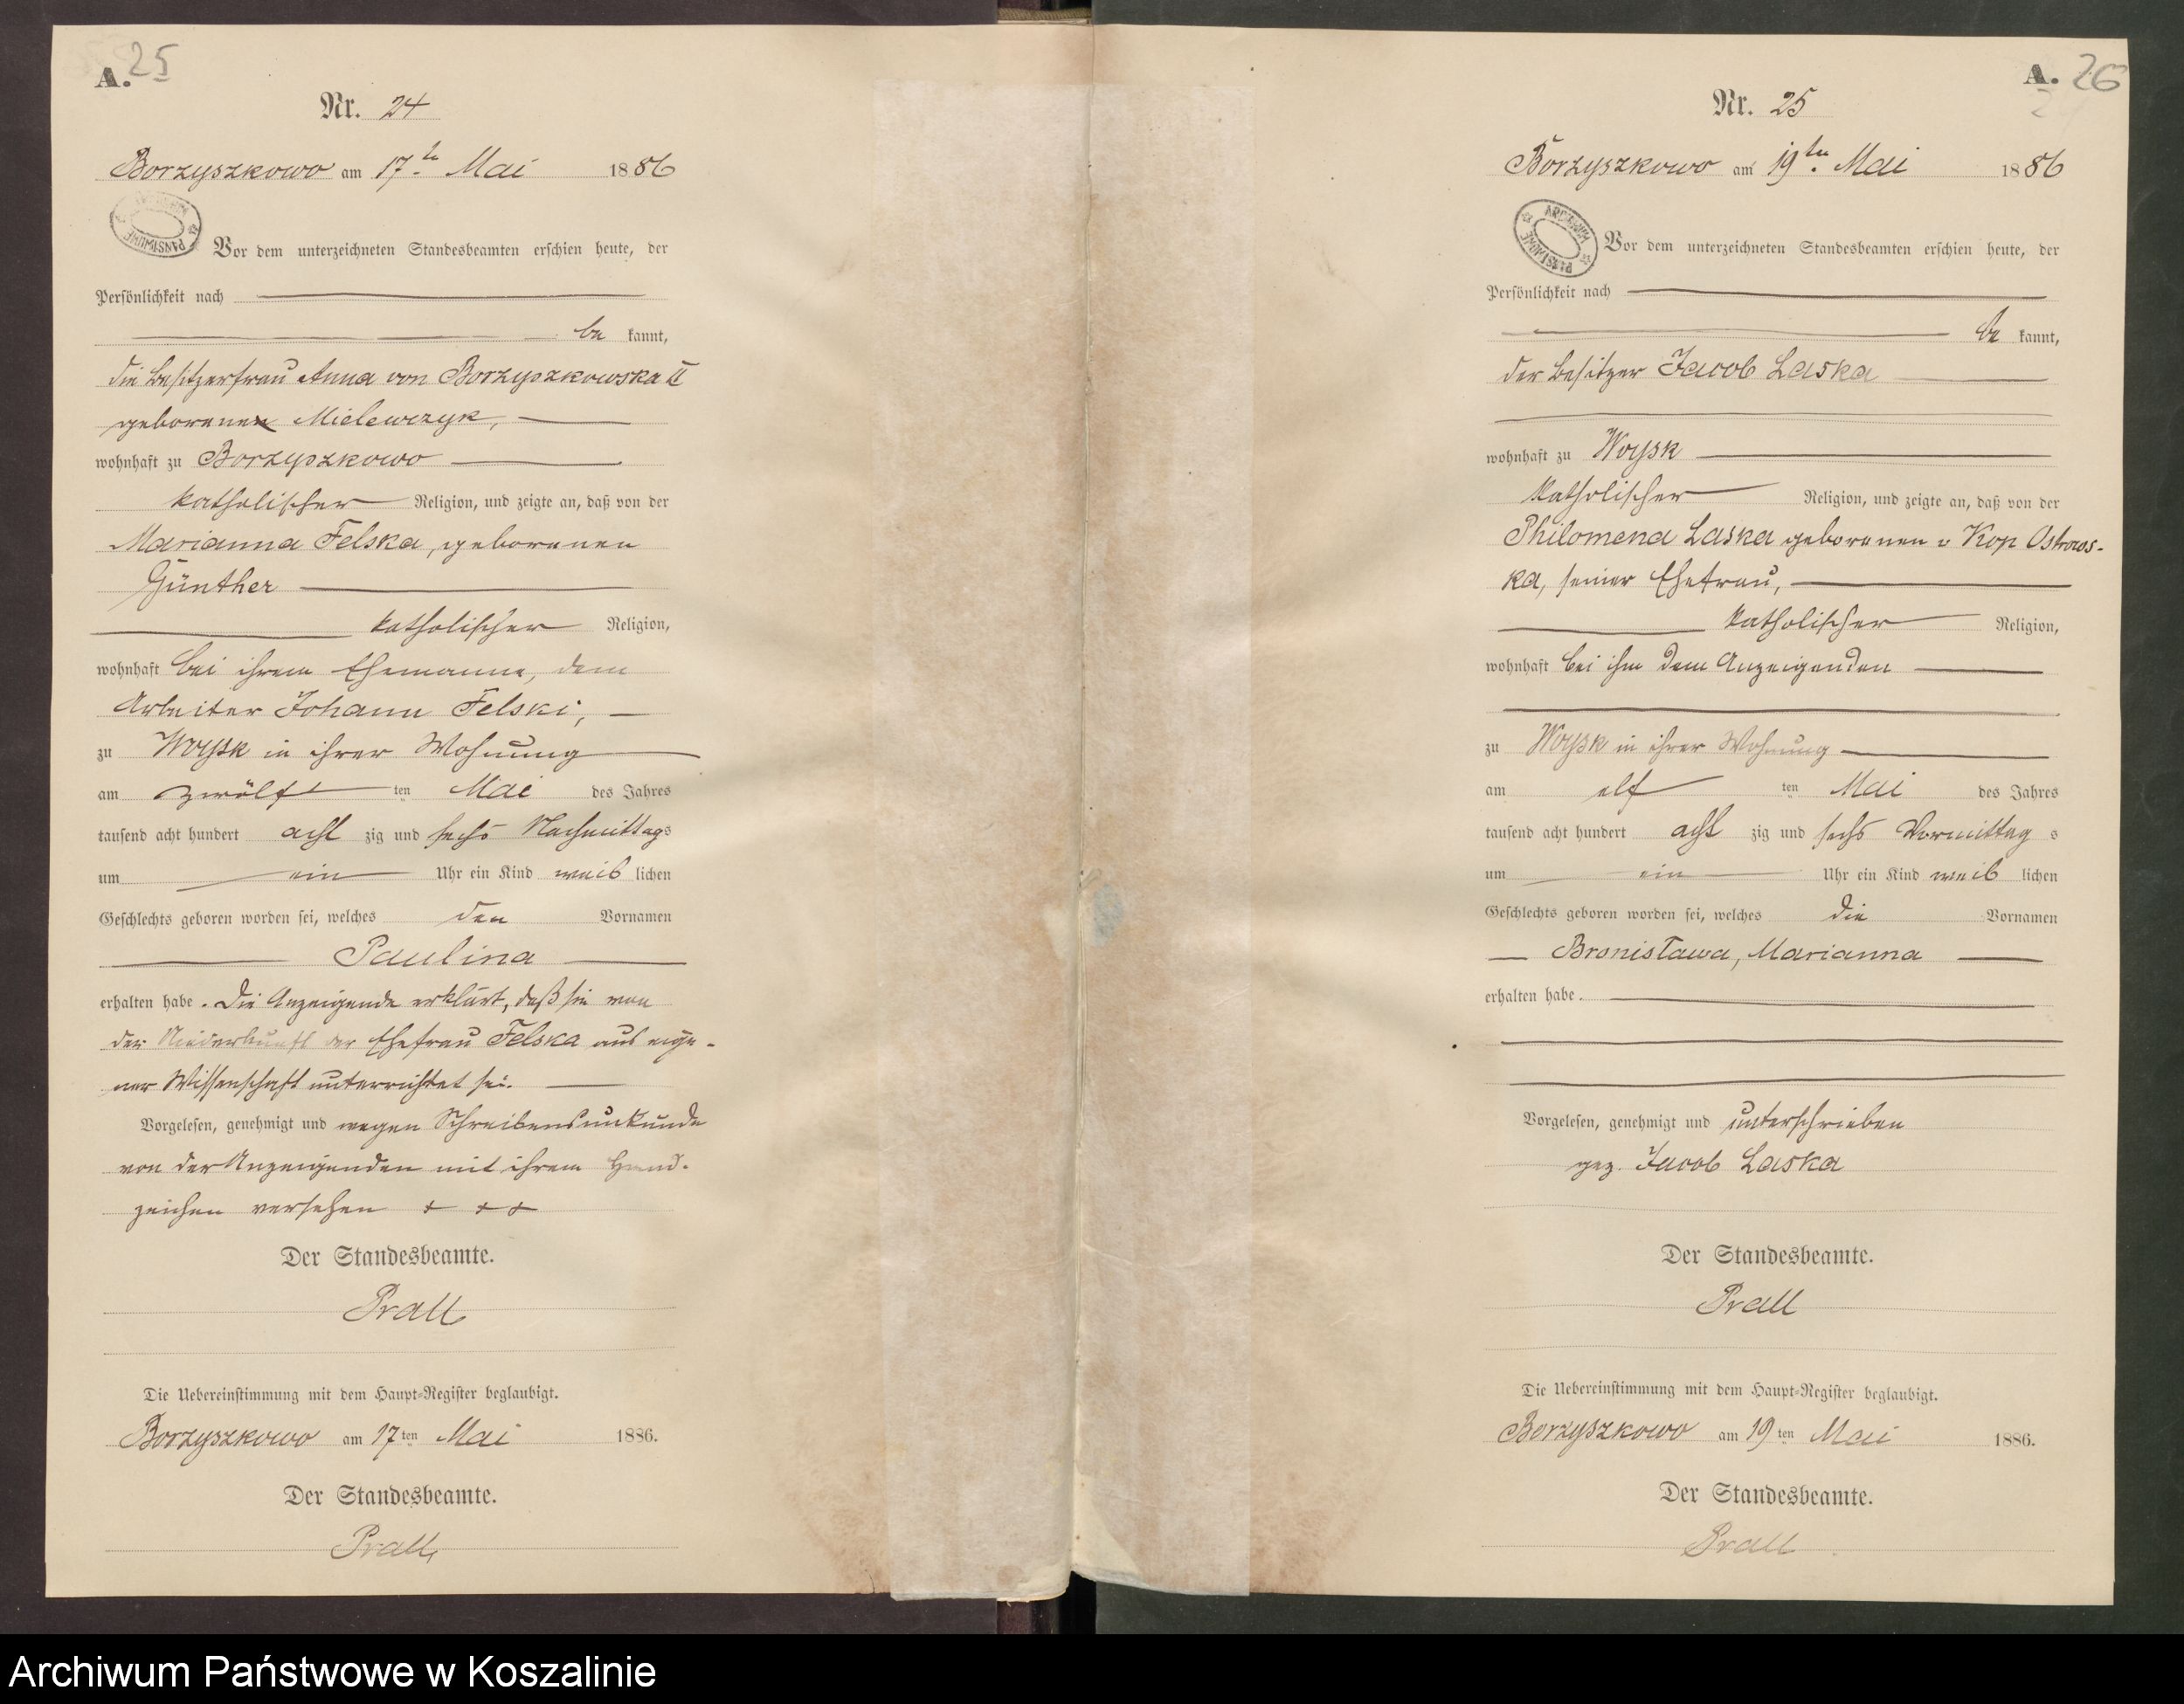 A. 25
Nr. 24
Borzyszkowo am 17ten Mai 1886
Vor dem unterzeichneten Standesbeamten erschien heute, der
Persönlichkeit nach
be kannt,
die Besitzerfrau Anna von Borzyszkowska II
geborenen Mielewczyk,
wohnhaft zu Borzyszkowo
katholischer Religion, und zeigte an, daß von der
Marianna Felska, geborenen
Günther
katholischer Religion,
wohnhaft bei ihrem Ehemanne, dem
Arbeiter Johann Felski,
zu Woysk in ihrer Wohnung
am zwölf ten Mai des Jahres
tausend acht hundert acht zig und sechs Nachmittags
um ein Uhr ein Kind weib lichen
Geschlechts geboren worden sei, welches den Vornamen
Paulina
erhalten habe. Die Anzeigende erklärt, daß sie von
der Niederkunft der Ehefrau Felska aus eige-
ner Wissenschaft unterrichtet sei.
Vorgelesen, genehmigt und wegen Schreibensunkunde
von der Anzeigenden mit ihrem Hand-
zeichen versehen + + +
Der Standesbeamte.
Prall
Die Uebereinstimmung mit dem Haupt-Register beglaubigt.
Borzyszkowo am 17ten Mai 1886.
Der Standesbeamte.
Prall
A. 26
Nr. 25
Borzyszkowo am 19ten Mai 1886
ARCHIWUM PAŃSTWOWE
Vor dem unterzeichneten Standesbeamten erschien heute, der
Persönlichkeit nach
be kannt,
der Besitzer Jacob Laska
wohnhaft zu Woysk
katholischer Religion, und zeigte an, daß von der
Philomena Laska geborenen v Kop Ostrows-
ka, seiner Ehefrau,
katholischer Religion,
wohnhaft bei ihm dem Anzeigenden
zu Woysk in ihrer Wohnung
am elf ten Mai des Jahres
tausend acht hundert acht zig und sechs Vormittag s
um ein Uhr ein Kind weib lichen
Geschlechts geboren worden sei, welches die Vornamen
Bronisława, Marianna
erhalten habe.
Vorgelesen, genehmigt und unterschrieben
gez. Jacob Laska
Der Standesbeamte.
Prall
Die Uebereinstimmung mit dem Haupt-Register beglaubigt.
Borzyszkowo am 19ten Mai 1886.
Der Standesbeamte.
Prall
Archiwum Państwowe w Koszalinie